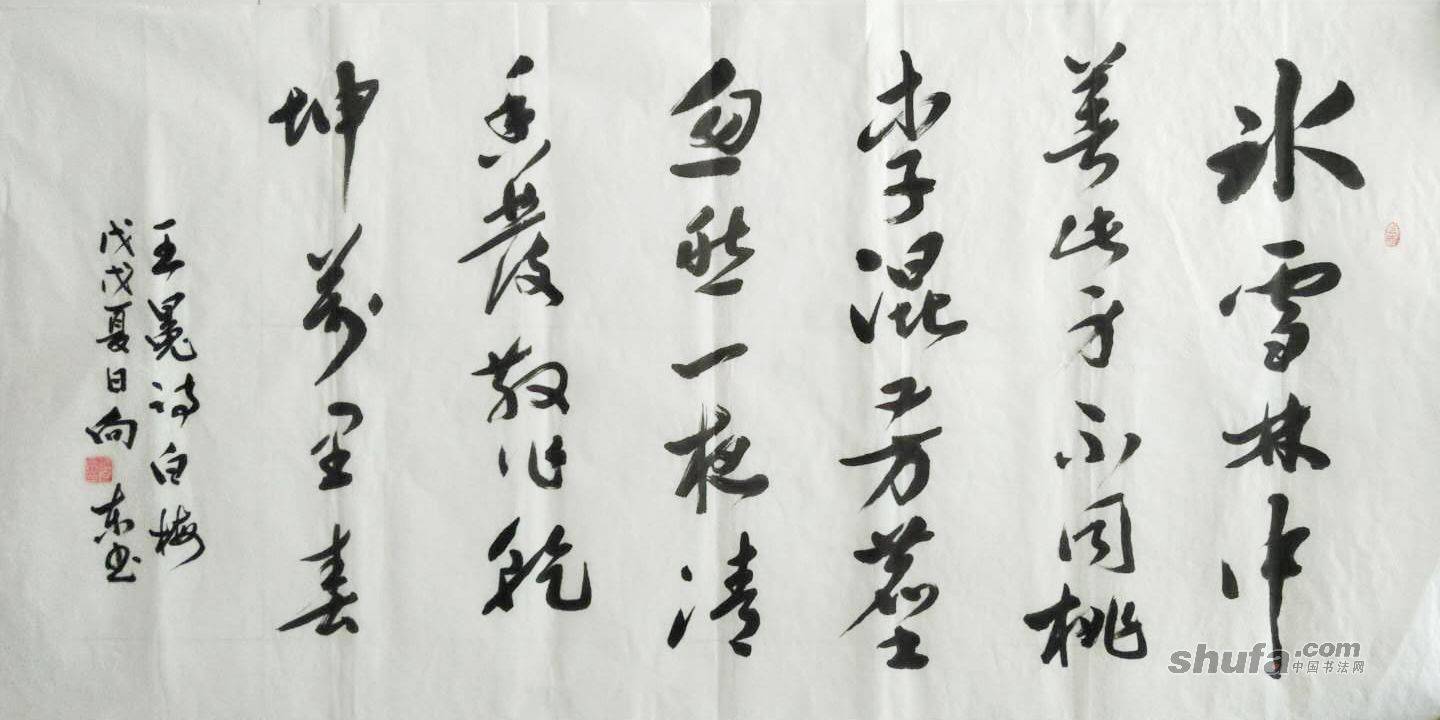 冰雪林中
著此身不同桃
李混芳塵
忽然一夜清
香發散作乾
坤萬里春
王冕诗白梅
戊戌夏日向东书
shufa.com
中国书法网